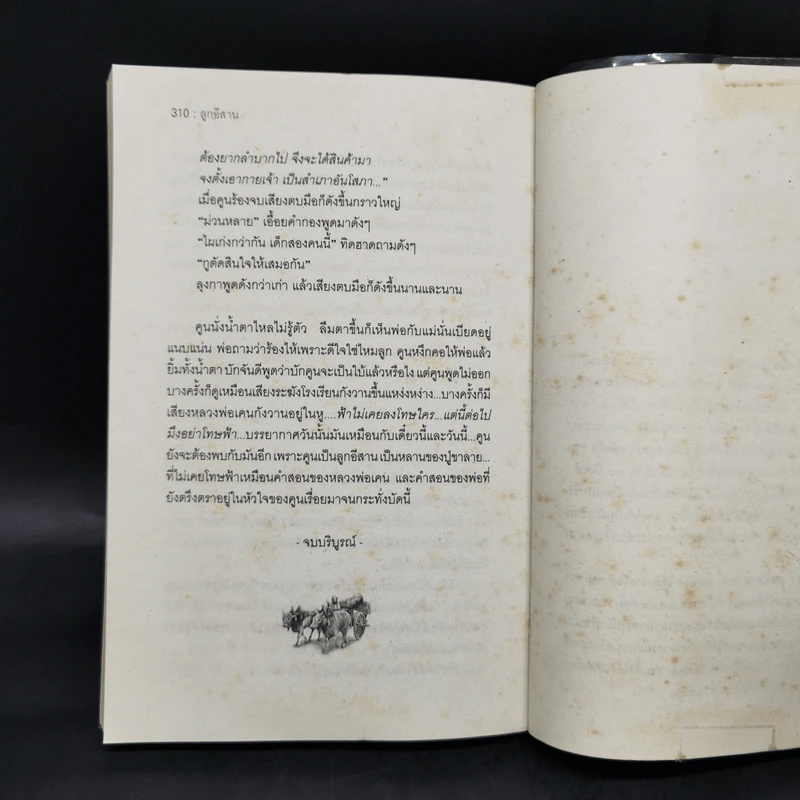 310 : ลูกอีสาน
ต้องยากลำบากไป จึงจะได้สินค้ามา
จงตั้งเอากายเจ้า เป็นสำเภาอันโสภา..."
เมื่อคูนร้องจบเสียงตบมือก็ดังขึ้นกราวใหญ่
"ม่วนหลาย" เอื้อยคำกองพูดมาดังๆ
"ไผเก่งกว่ากัน เด็กสองคนนี้" ทิดฮาดถามดังๆ
"กูตัดสินใจให้เสมอกัน"
ลุงกาพูดดังกว่าเก่า แล้วเสียงตบมือก็ดังขึ้นนานและนาน
คูนนั่งน้ำตาไหลไม่รู้ตัว ลืมตาขึ้นก็เห็นพ่อกับแม่นั่นเบียดอยู่
แนบแน่น พ่อถามว่าร้องไห้เพราะดีใจใช่ไหมลูก คูนหงึกคอให้พ่อแล้ว
ยิ้มทั้งน้ำตา บักจันดีพูดว่าบักคูนจะเป็นใบ้แล้วหรือไง แต่คูนพูดไม่ออก
บางครั้งก็ดูเหมือนเสียงระฆังโรงเรียนกังวานขึ้นแหง่งหง่าง...บางครั้งก็มี
เสียงหลวงพ่อเคนกังวานอยู่ในหู....ฟ้าไม่เคยลงโทษใคร...แต่นี้ต่อไป
มึงอย่าโทษฟ้า...บรรยากาศวันนั้นมันเหมือนกับเดี๋ยวนี้และวันนี้...คูน
ยังจะต้องพบกับมันอีก เพราะคูนเป็นลูกอีสาน เป็นหลานของปู่ขาลาย...
ที่ไม่เคยโทษฟ้าเหมือนคำสอนของหลวงพ่อเคน และคำสอนของพ่อที่
ยังตรึงตราอยู่ในหัวใจของคูนเรื่อยมาจนกระทั่งบัดนี้
- จบบริบูรณ์ -